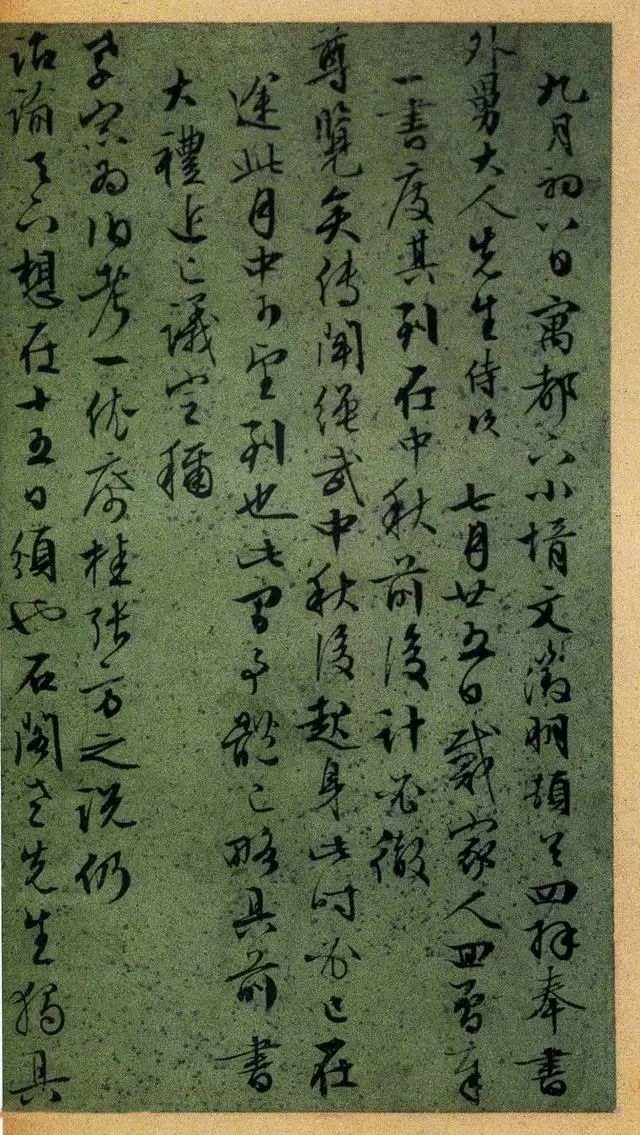 九月初八日寓都下小壻文徵明頓首四拜奉書
外舅大人先生侍次 七月廿五日戴家人回曾奉
一書度其到在中秋前後計必徹
尊覽矣傳聞繩武中秋後起身此時必已在
途此月中可望到也此間事體已略具前書
大禮近已議定稱
孝宗為伯考一依席桂張方之説仍
詔諭天下想在十五日頒也石閣老先生獨具